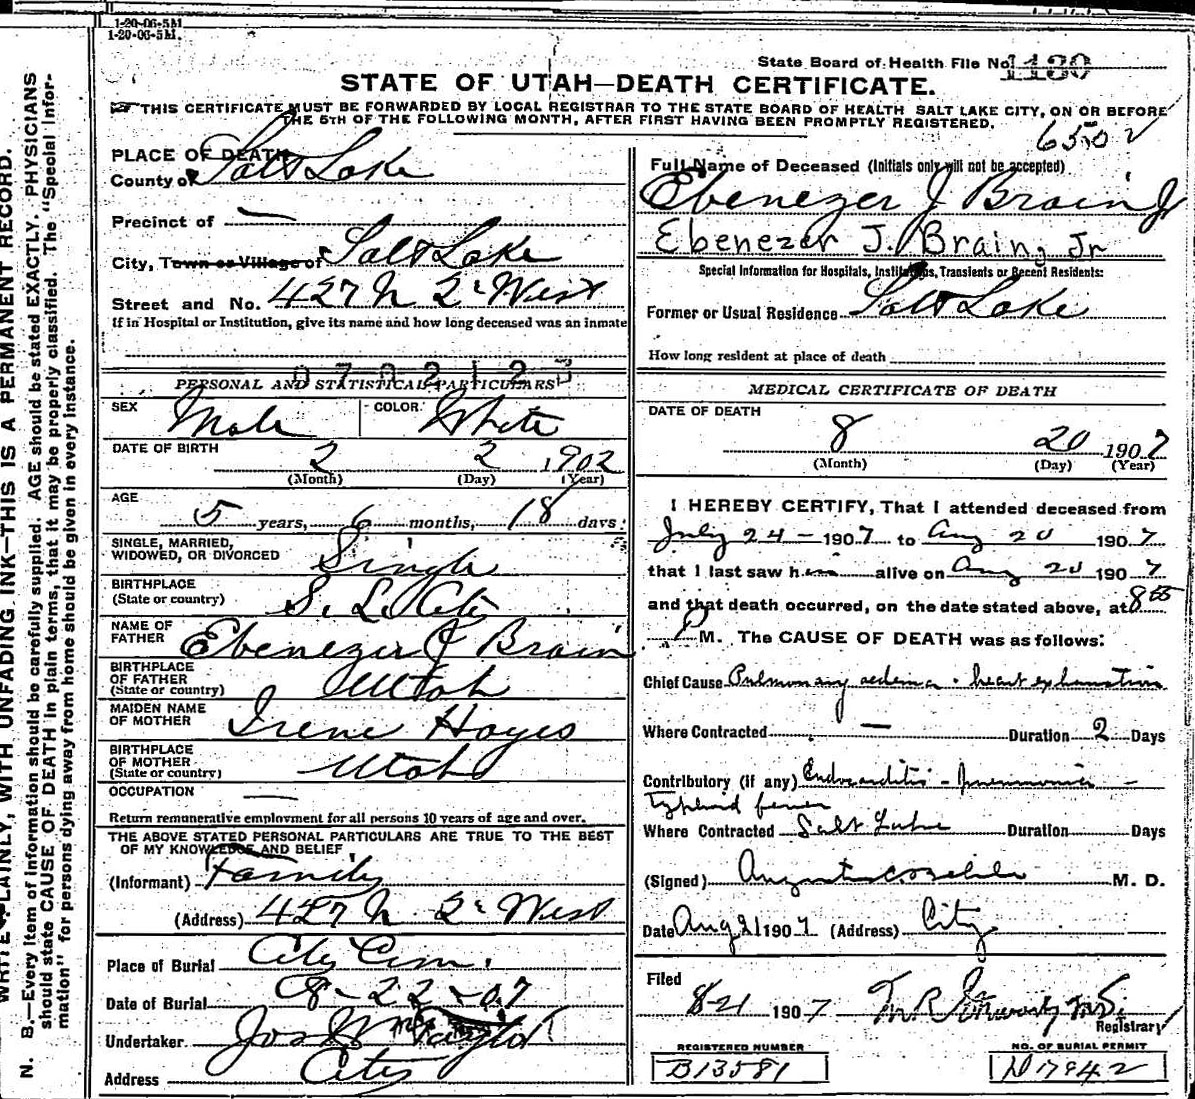 1-20-06-5M
1-20-06-5M.
State Board of Health File No. 1130
STATE OF UTAH—DEATH CERTIFICATE.
THIS CERTIFICATE MUST BE FORWARDED BY LOCAL REGISTRAR TO THE STATE BOARD OF HEALTH SALT LAKE CITY, ON OR BEFORE
THE 5TH OF THE FOLLOWING MONTH, AFTER FIRST HAVING BEEN PROMPTLY REGISTERED.
6502
PLACE OF DEATH
County of Salt Lake
Precinct of —
City, Town or Village of Salt Lake
Street and No. 427 N 2d West
If in Hospital or Institution, give its name and how long deceased was an inmate
PERSONAL AND STATISTICAL PARTICULARS
SEX Male COLOR White
DATE OF BIRTH 2 2 1902
(Month) (Day) (Year)
AGE
5 years, 6 months, 18 days
SINGLE, MARRIED,
WIDOWED, OR DIVORCED Single
BIRTHPLACE
(State or country) S. L. City
NAME OF
FATHER Ebenezer J Brain
BIRTHPLACE
OF FATHER
(State or country) Utah
MAIDEN NAME
OF MOTHER Irene Hayes
BIRTHPLACE
OF MOTHER
(State or country) Utah
OCCUPATION —
Return remunerative employment for all persons 10 years of age and over.
THE ABOVE STATED PERSONAL PARTICULARS ARE TRUE TO THE BEST
OF MY KNOWLEDGE AND BELIEF
(Informant) Family
(Address) 427 N 2d West
Place of Burial City Cem.
Date of Burial 8-22-07
Undertaker Jos Wm Taylor
Address City
Full Name of Deceased (Initials only will not be accepted)
Ebenezer J Brain Jr
Ebenezer J. Brain, Jr
Special Information for Hospitals, Institutions, Transients or Recent Residents:
Former or Usual Residence Salt Lake
How long resident at place of death
MEDICAL CERTIFICATE OF DEATH
DATE OF DEATH
8 20 1907
(Month) (Day) (Year)
I HEREBY CERTIFY, That I attended deceased from
July 24 — 1907 to Aug 20 1907
that I last saw him alive on Aug 20 1907
and that death occurred, on the date stated above, at 8 55
P M. The CAUSE OF DEATH was as follows:
Chief Cause Pulmonary aedema - heart exhaustion
Where Contracted — Duration 2 Days
Contributory (if any) Endocarditis - Pneumonia -
Typhoid fever
Where Contracted Salt Lake Duration Days
(Signed) M. D.
Date Aug 21 1907 (Address) City
Filed
8-21 1907
Registrar
REGISTERED NUMBER
B13581
NO. OF BURIAL PERMIT
D17942
WRITE PLAINLY, WITH UNFADING INK—THIS IS A PERMANENT RECORD.
N. B.—Every item of information should be carefully supplied. AGE should be stated EXACTLY. PHYSICIANS
should state CAUSE OF DEATH in plain terms, that it may be properly classified. The "Special Infor-
mation" for persons dying away from home should be given in every instance.